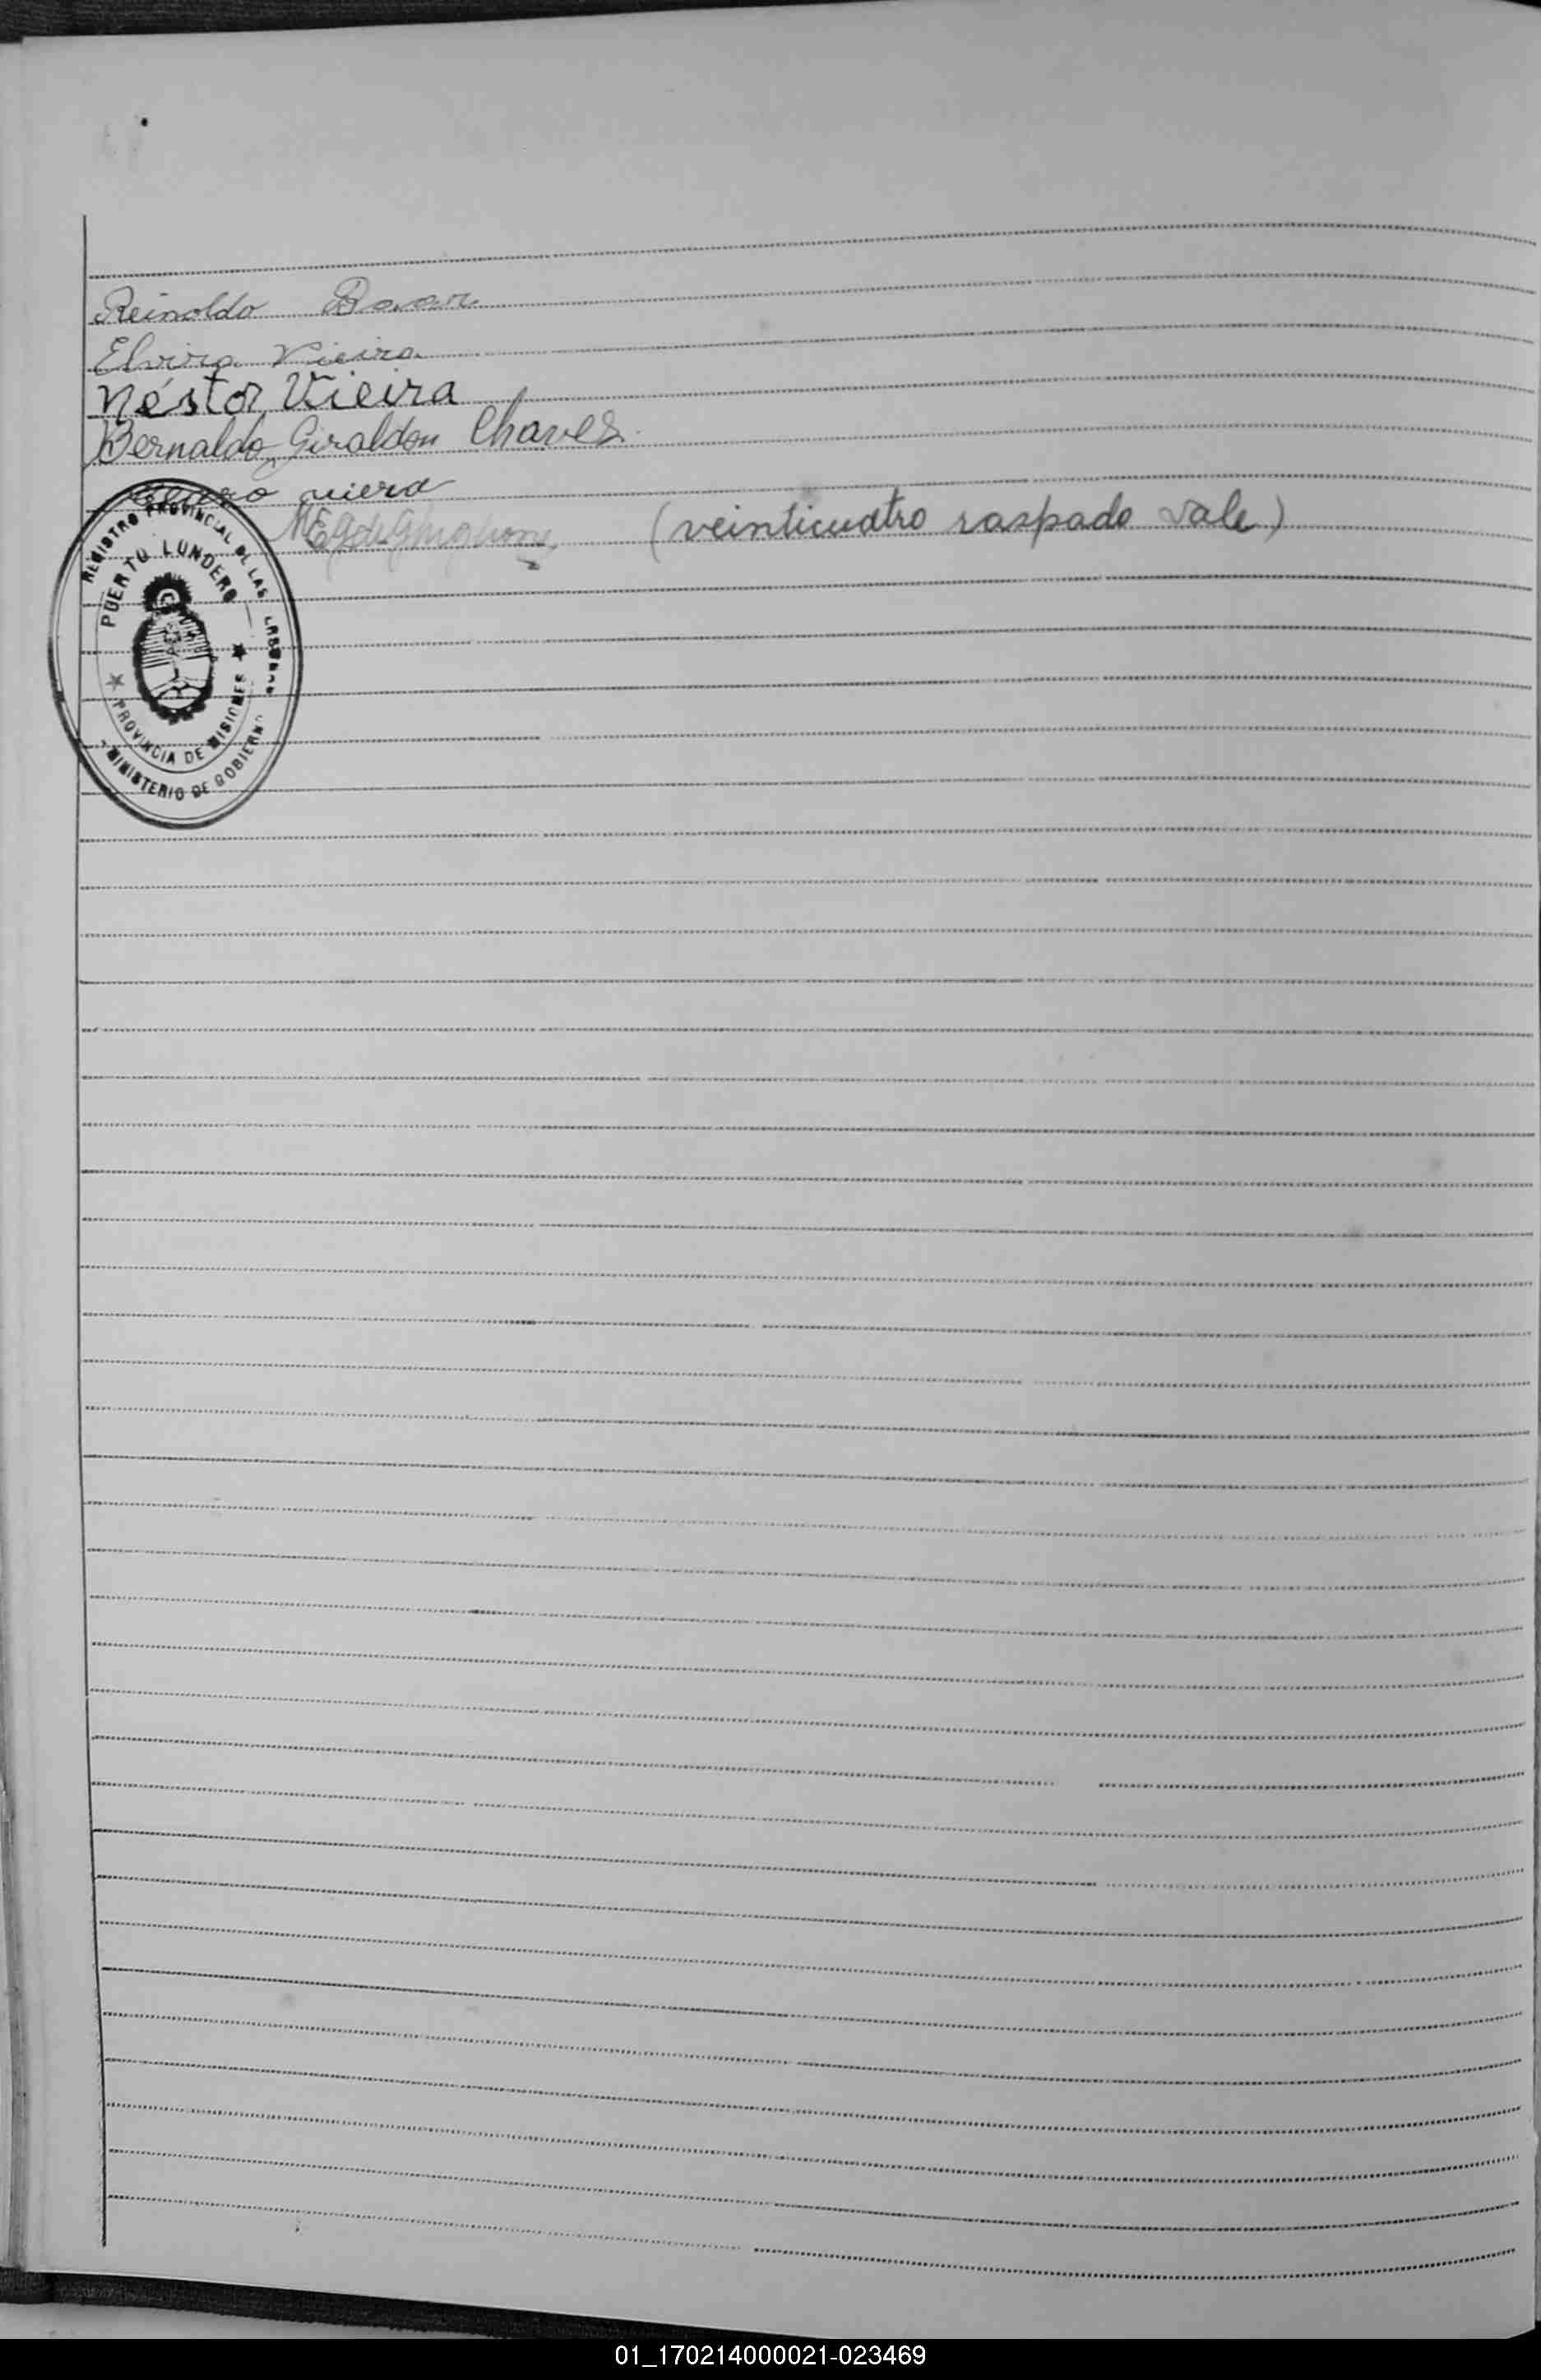 Reinoldo
Elvira Vieira
Néstor Vieira
Bernaldo Giraldon Chaves
viera
(veinticuatro raspado vale)
REGISTRO PROVINCIAL DE LAS
PUERTO LONDERO
PROVINCIA DE MISIONES
MINISTERIO DE GOBIERNO
01_170214000021-023469